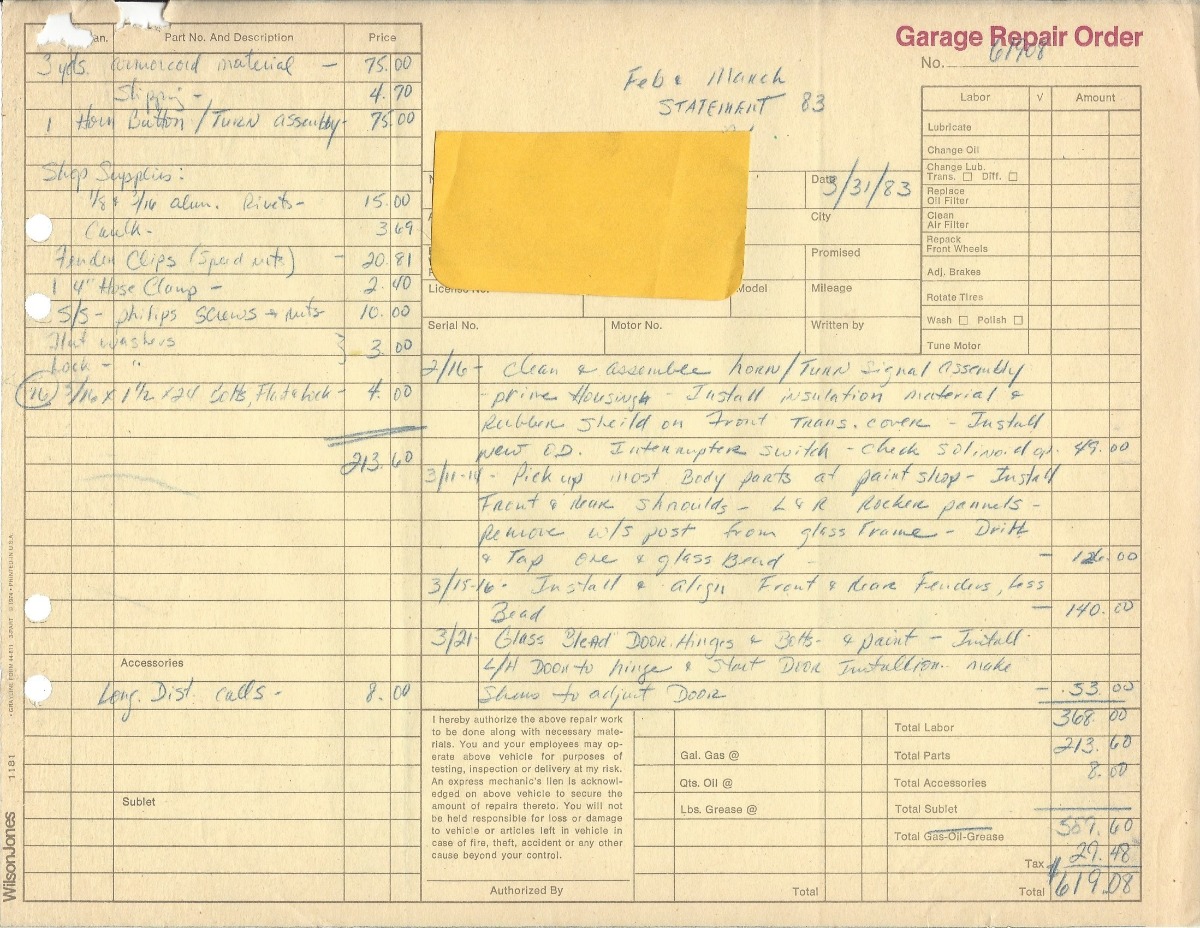 Garage Repair Order
No. 61908
an. Part No. And Description Price
3 yds. armorcord material — 75.00
Shipping - 4.70
1 Horn Button / Turn assembly- 75.00
Shop Supplies:
1/8 & 3/16 alum. Rivets- 15.00
Caulk- 3 69
Fender Clips (Speed nuts) - 20.81
1 4" Hose Clamp - 2.40
S/S- philips screws & nuts 10.00
Flat washers
Lock - " 3.00
(16) 3/16 x 1 1/2 x 24 bolts, Flat & lock - 4.00
213.60
Accessories
Long. Dist. calls - 8.00
Sublet
Feb & March
STATEMENT 83
Date 3/31/83
City
Promised
License No. Model Mileage
Serial No. Motor No. Written by
Labor √ Amount
Lubricate
Change Oil
Change Lub.
Trans. ☐ Diff. ☐
Replace
Oil Filter
Clean
Air Filter
Repack
Front Wheels
Adj. Brakes
Rotate Tires
Wash ☐ Polish ☐
Tune Motor
2/16- Clean & assemblee horn/Turn Signal assembly
-prime Housingh - Install insulation material &
Rubber Sheild on Front Trans. cover - Install
new O.D. Interrupter switch - check Solinoid op. 49.00
3/11-14- Pick up most Body parts at paint shop- Install
Front & Rear Shroulds - L & R Rocker pannels -
Remove w/s post from glass Frame - Drill
& Tap one & glass Bead — 126.00
3/15-16- Install & align Front & Rear Fenders, Less
Bead — 140.00
3/21- Glass Blead Door Hinges & Bolts- & paint - Install
L/H Door to hinge & Start Door Installion. make
Shims to adjust Door — 53.00
I hereby authorize the above repair work
to be done along with necessary mate-
rials. You and your employees may op-
erate above vehicle for purposes of
testing, inspection or delivery at my risk.
An express mechanic's lien is acknowl-
edged on above vehicle to secure the
amount of repairs thereto. You will not
be held responsible for loss or damage
to vehicle or articles left in vehicle in
case of fire, theft, accident or any other
cause beyond your control.
Authorized By
Gal. Gas @
Qts. Oil @
Lbs. Grease @
Total
Total Labor 368.00
Total Parts 213.60
Total Accessories 8.00
Total Sublet
Total Gas-Oil-Grease 589.60
Tax 29.48
Total $619.08
WilsonJones 1181 • GRAYLINE FORM 44-811 3-PART © 1974 • PRINTED IN U.S.A.